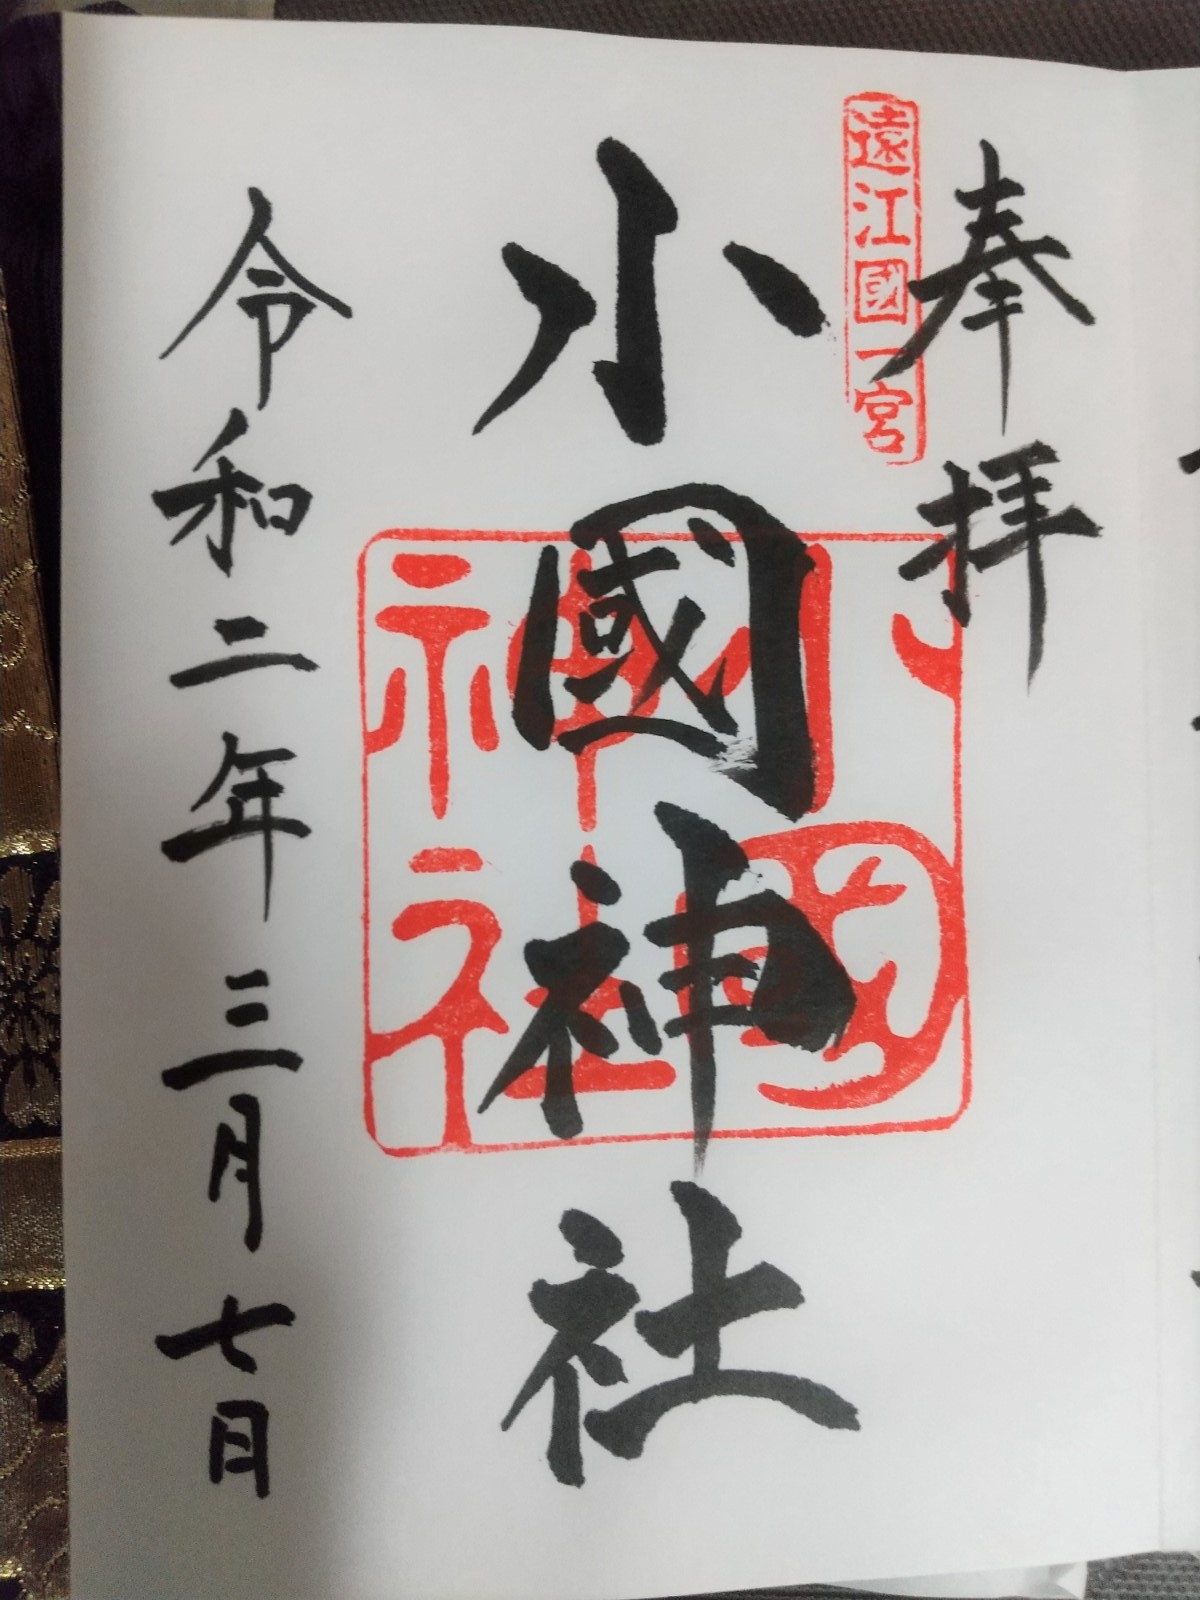 奉拝
遠江國一宮
小國神社
小國神社
令和二年三月七日